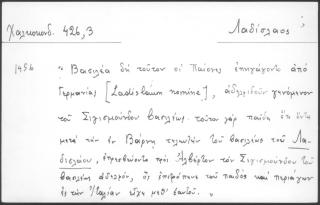 Χαλκοκονδ. 426,3 Λαδίσλαος
1456 " Βασιλέα δὴ τοῦτον οἱ Παίονες ἐπηγάγοντο ἀπὸ
Γερμανίας [Ladislaum nomine], ἀδελφιδοῦν γενόμενον
τοῦ Σιγισμούνδου βασιλέως. τοῦτον γὰρ παῖδα ἔτι ὄντα
μετὰ τὴν ἐν Βάρνῃ τελευτὴν τοῦ βασιλέως τοῦ Λα-
δισλάου, πρὸς Ἀλβέρτον τὸν Σιγισμούνδου τοῦ
βασιλέως ἀδελφόν, ὃς ἐπετρόπευε τοῦ παιδὸς καὶ περιάγων
ἐς τὴν Ἰταλίαν εἶχε μεθ' ἑαυτοῦ. "